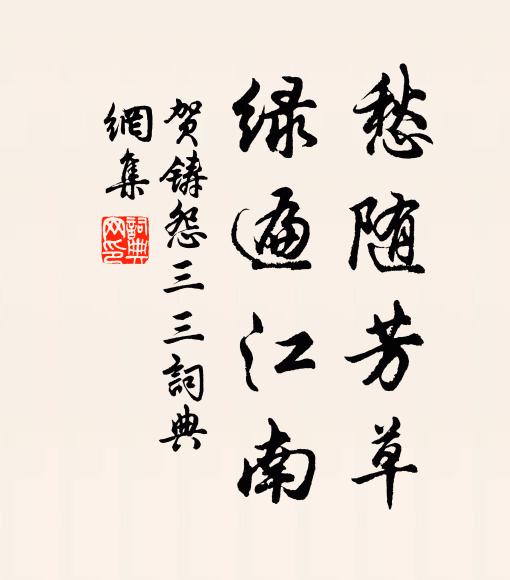 愁随芳草
绿遍江南
贺铸怨三三詞典
網集
詞典網印